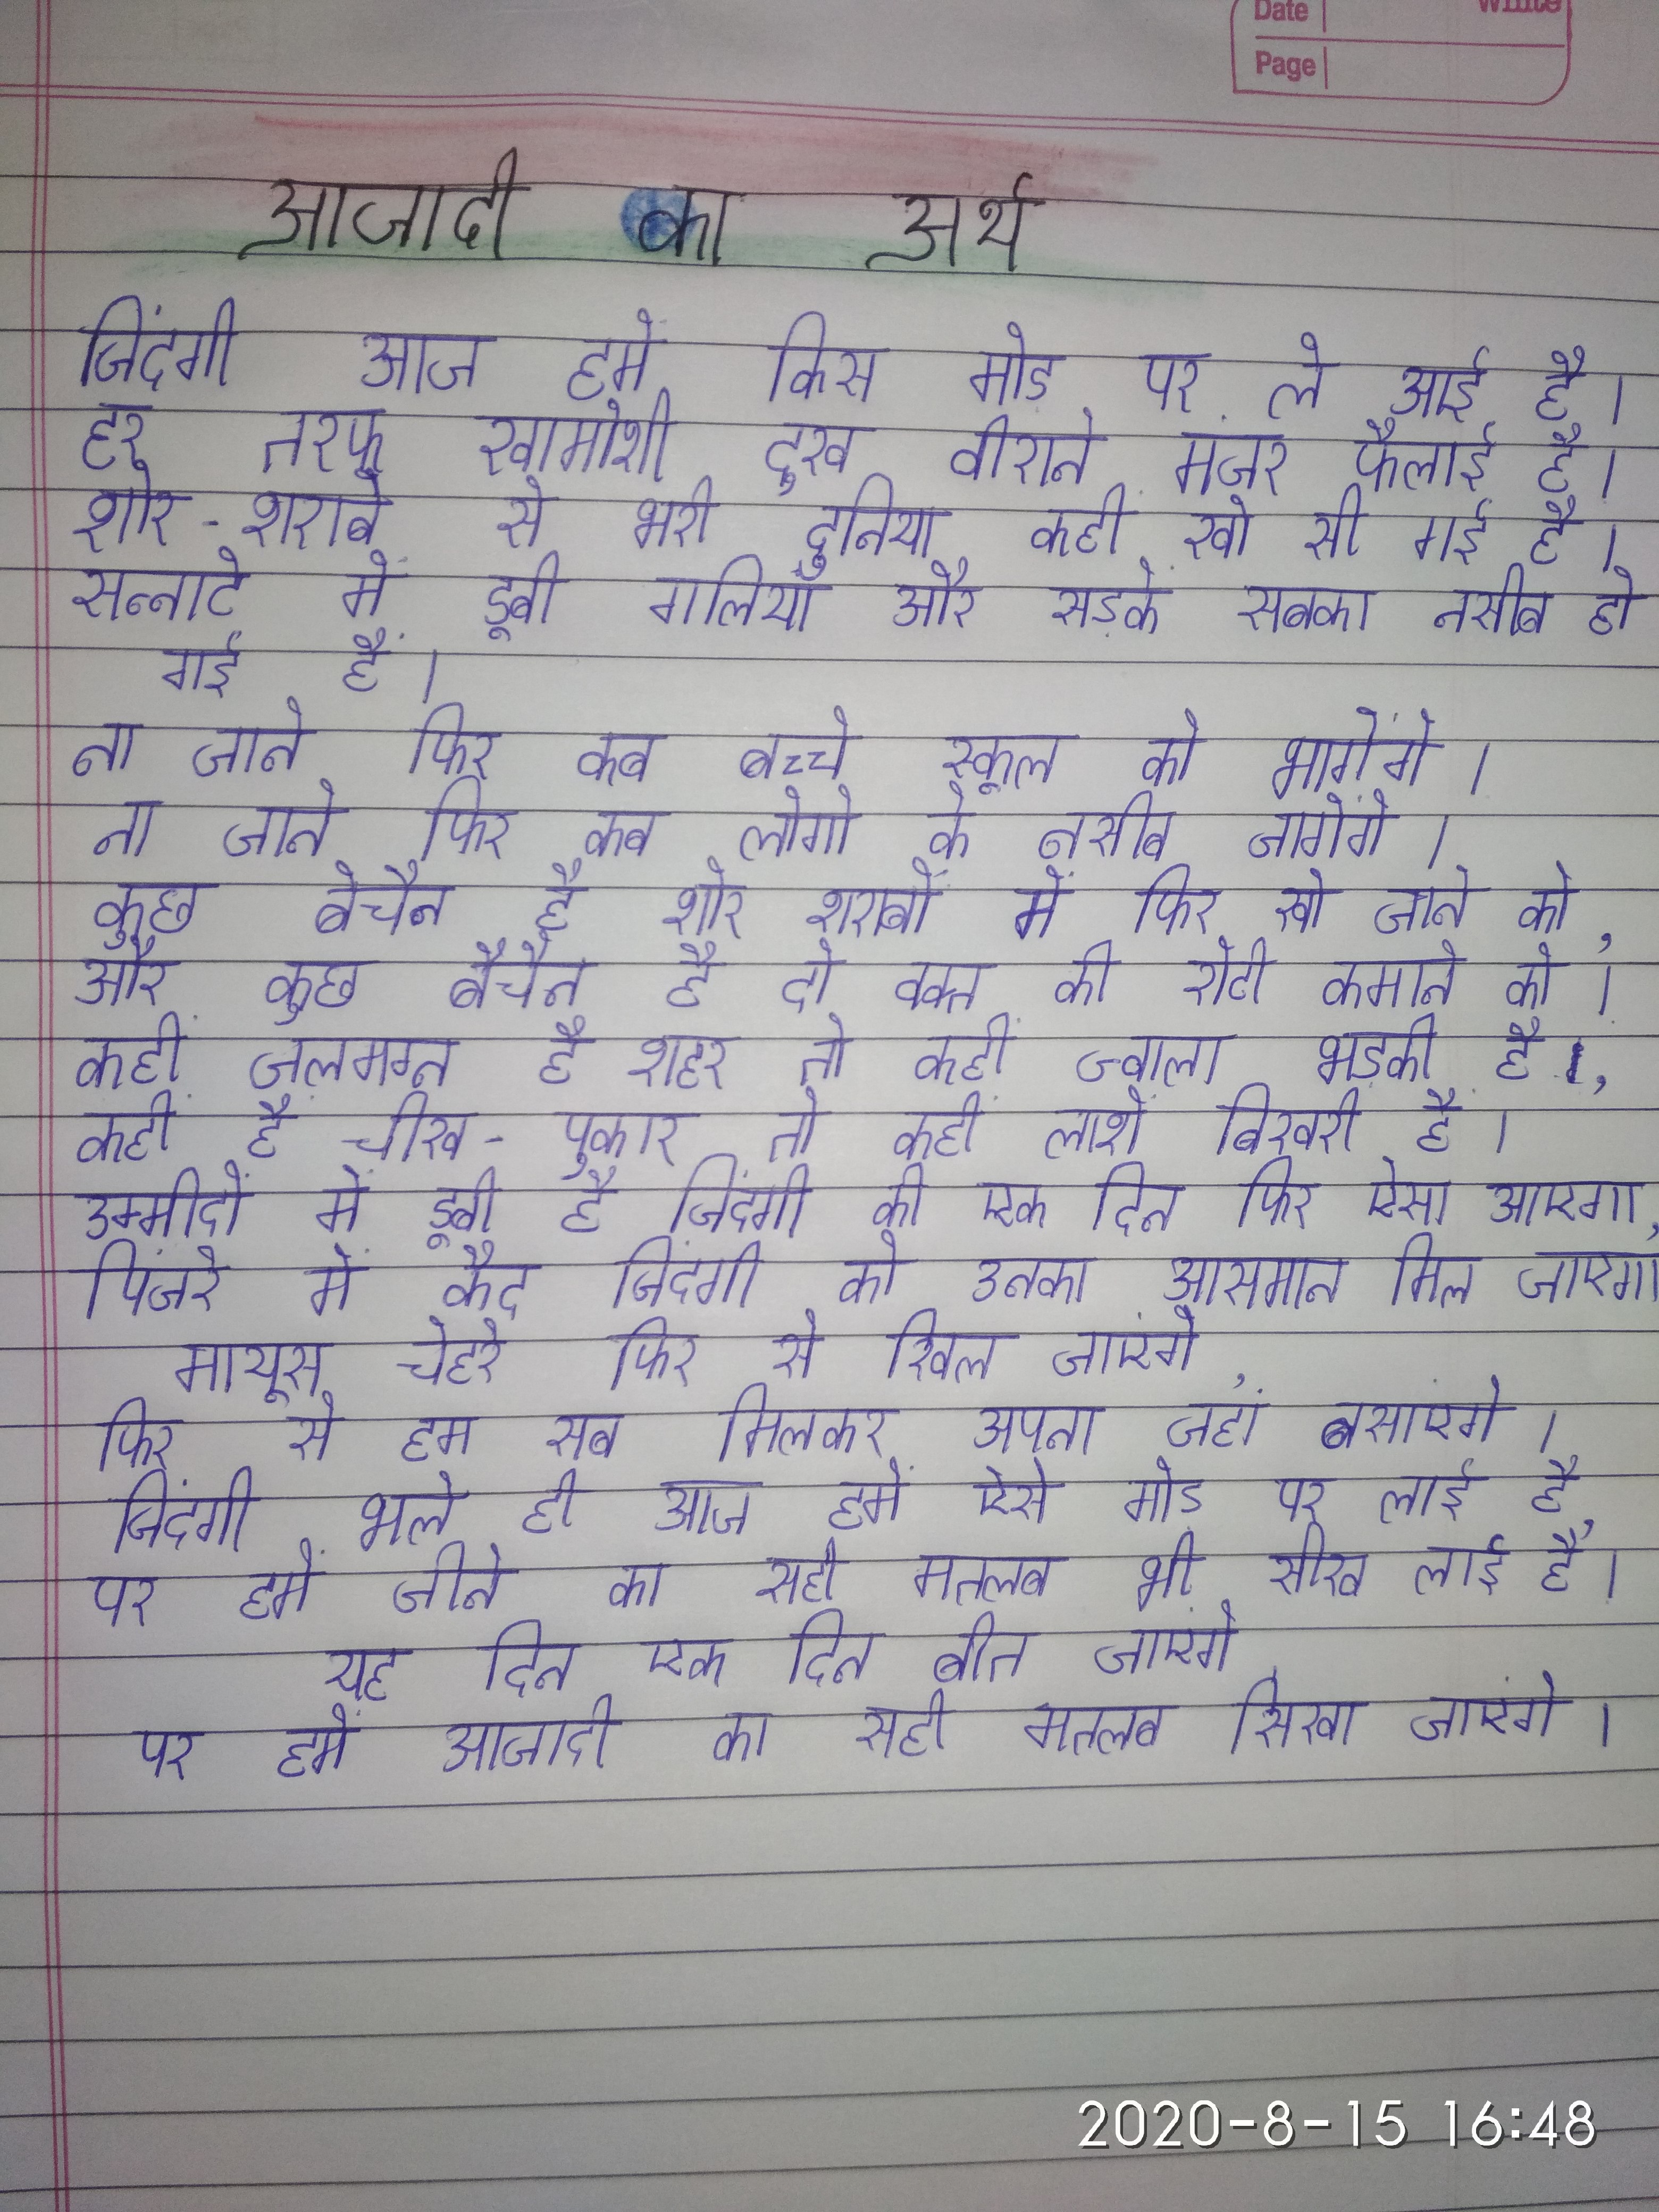 Date
Page
आजादी का अर्थ
जिंदगी आज हमें किस मोड़ पर ले आई है।
हर तरफ खामोशी दुख वीराने मंजर फैलाई है।
शोर-शराबे से भरी दुनिया कही खो सी गई है।
सन्नाटे में डूबी गलियाँ और सड़कें सबका नसीब हो
गई हैं।
ना जाने फिर कब बच्चे स्कूल को भागेंगे।
ना जाने फिर कब लोगो के नसीब जागेंगे।
कुछ बेचैन है शोर शराबों में फिर खो जाने को,
और कुछ बैचेन है दो वक्त की रोटी कमाने को।
कहीं जलमग्न है शहर तो कहीं ज्वाला भड़की है।,
कहीं है चीख-पुकार तो कहीं लाशें बिखरी है।
उम्मीदों में डूबी है जिंदगी की एक दिन फिर ऐसा आएगा,
पिंजरे में कैद जिंदगी को उनका आसमान मिल जाएगा
मायूस चेहरे फिर से खिल जाएंगे,
फिर से हम सब मिलकर अपना जहां बसाएंगे।
जिंदगी भले ही आज हमें ऐसे मोड़ पर लाई है,
पर हमें जीने का सही मतलब भी सीख लाई है।
यह दिन एक दिन बीत जाएंगे,
पर हमें आजादी का सही मतलब सिखा जाएंगे।
2020-8-15 16:48